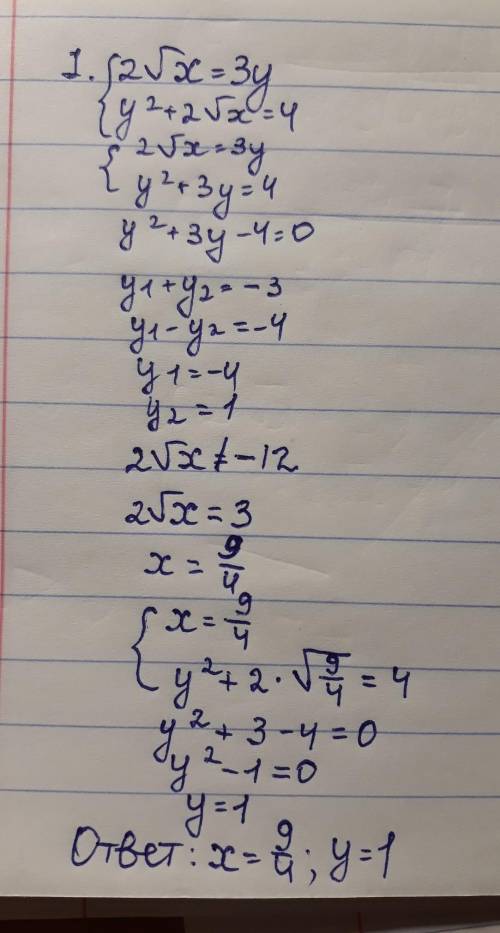 1. { 2√x = 3y
y² + 2√x = 4
{ 2√x = 3y
y² + 3y = 4
y² + 3y - 4 = 0
y₁ + y₂ = -3
y₁ - y₂ = -4
y₁ = -4
y₂ = 1
2√x ≠ -12
2√x = 3
x = 9/4
{ x = 9/4
y² + 2 · √(9/4) = 4
y² + 3 - 4 = 0
y² - 1 = 0
y = 1
Ответ: x = 9/4; y = 1